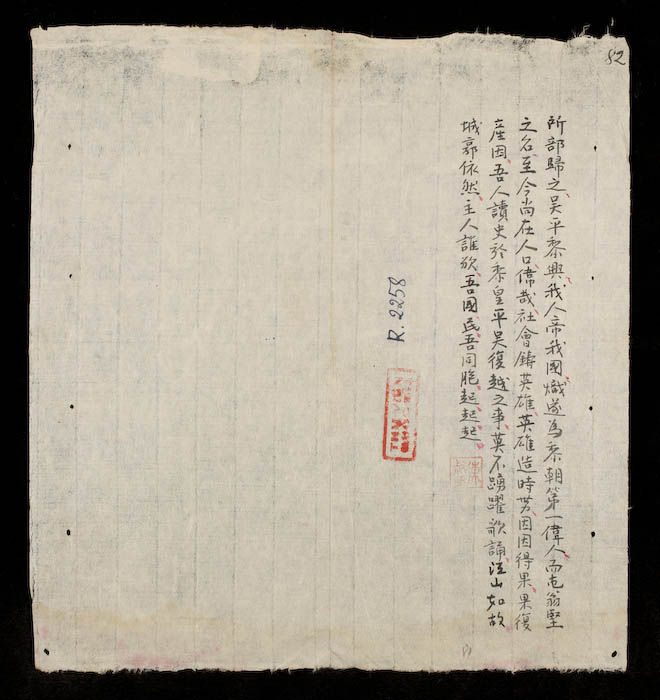 52
所部歸之吴平黎興我人帝我國熾遂為黎朝第一偉人而屯翁堅
之名至今尚在人口偉哉社會鑄英雄英雄造時势因因得果果復
産因吾人讀史於黎皇平吴復越之事莫不踴躍歌誦江山如故
城郭依然主人誰欤吾國民吾同胞起起起
R.2258